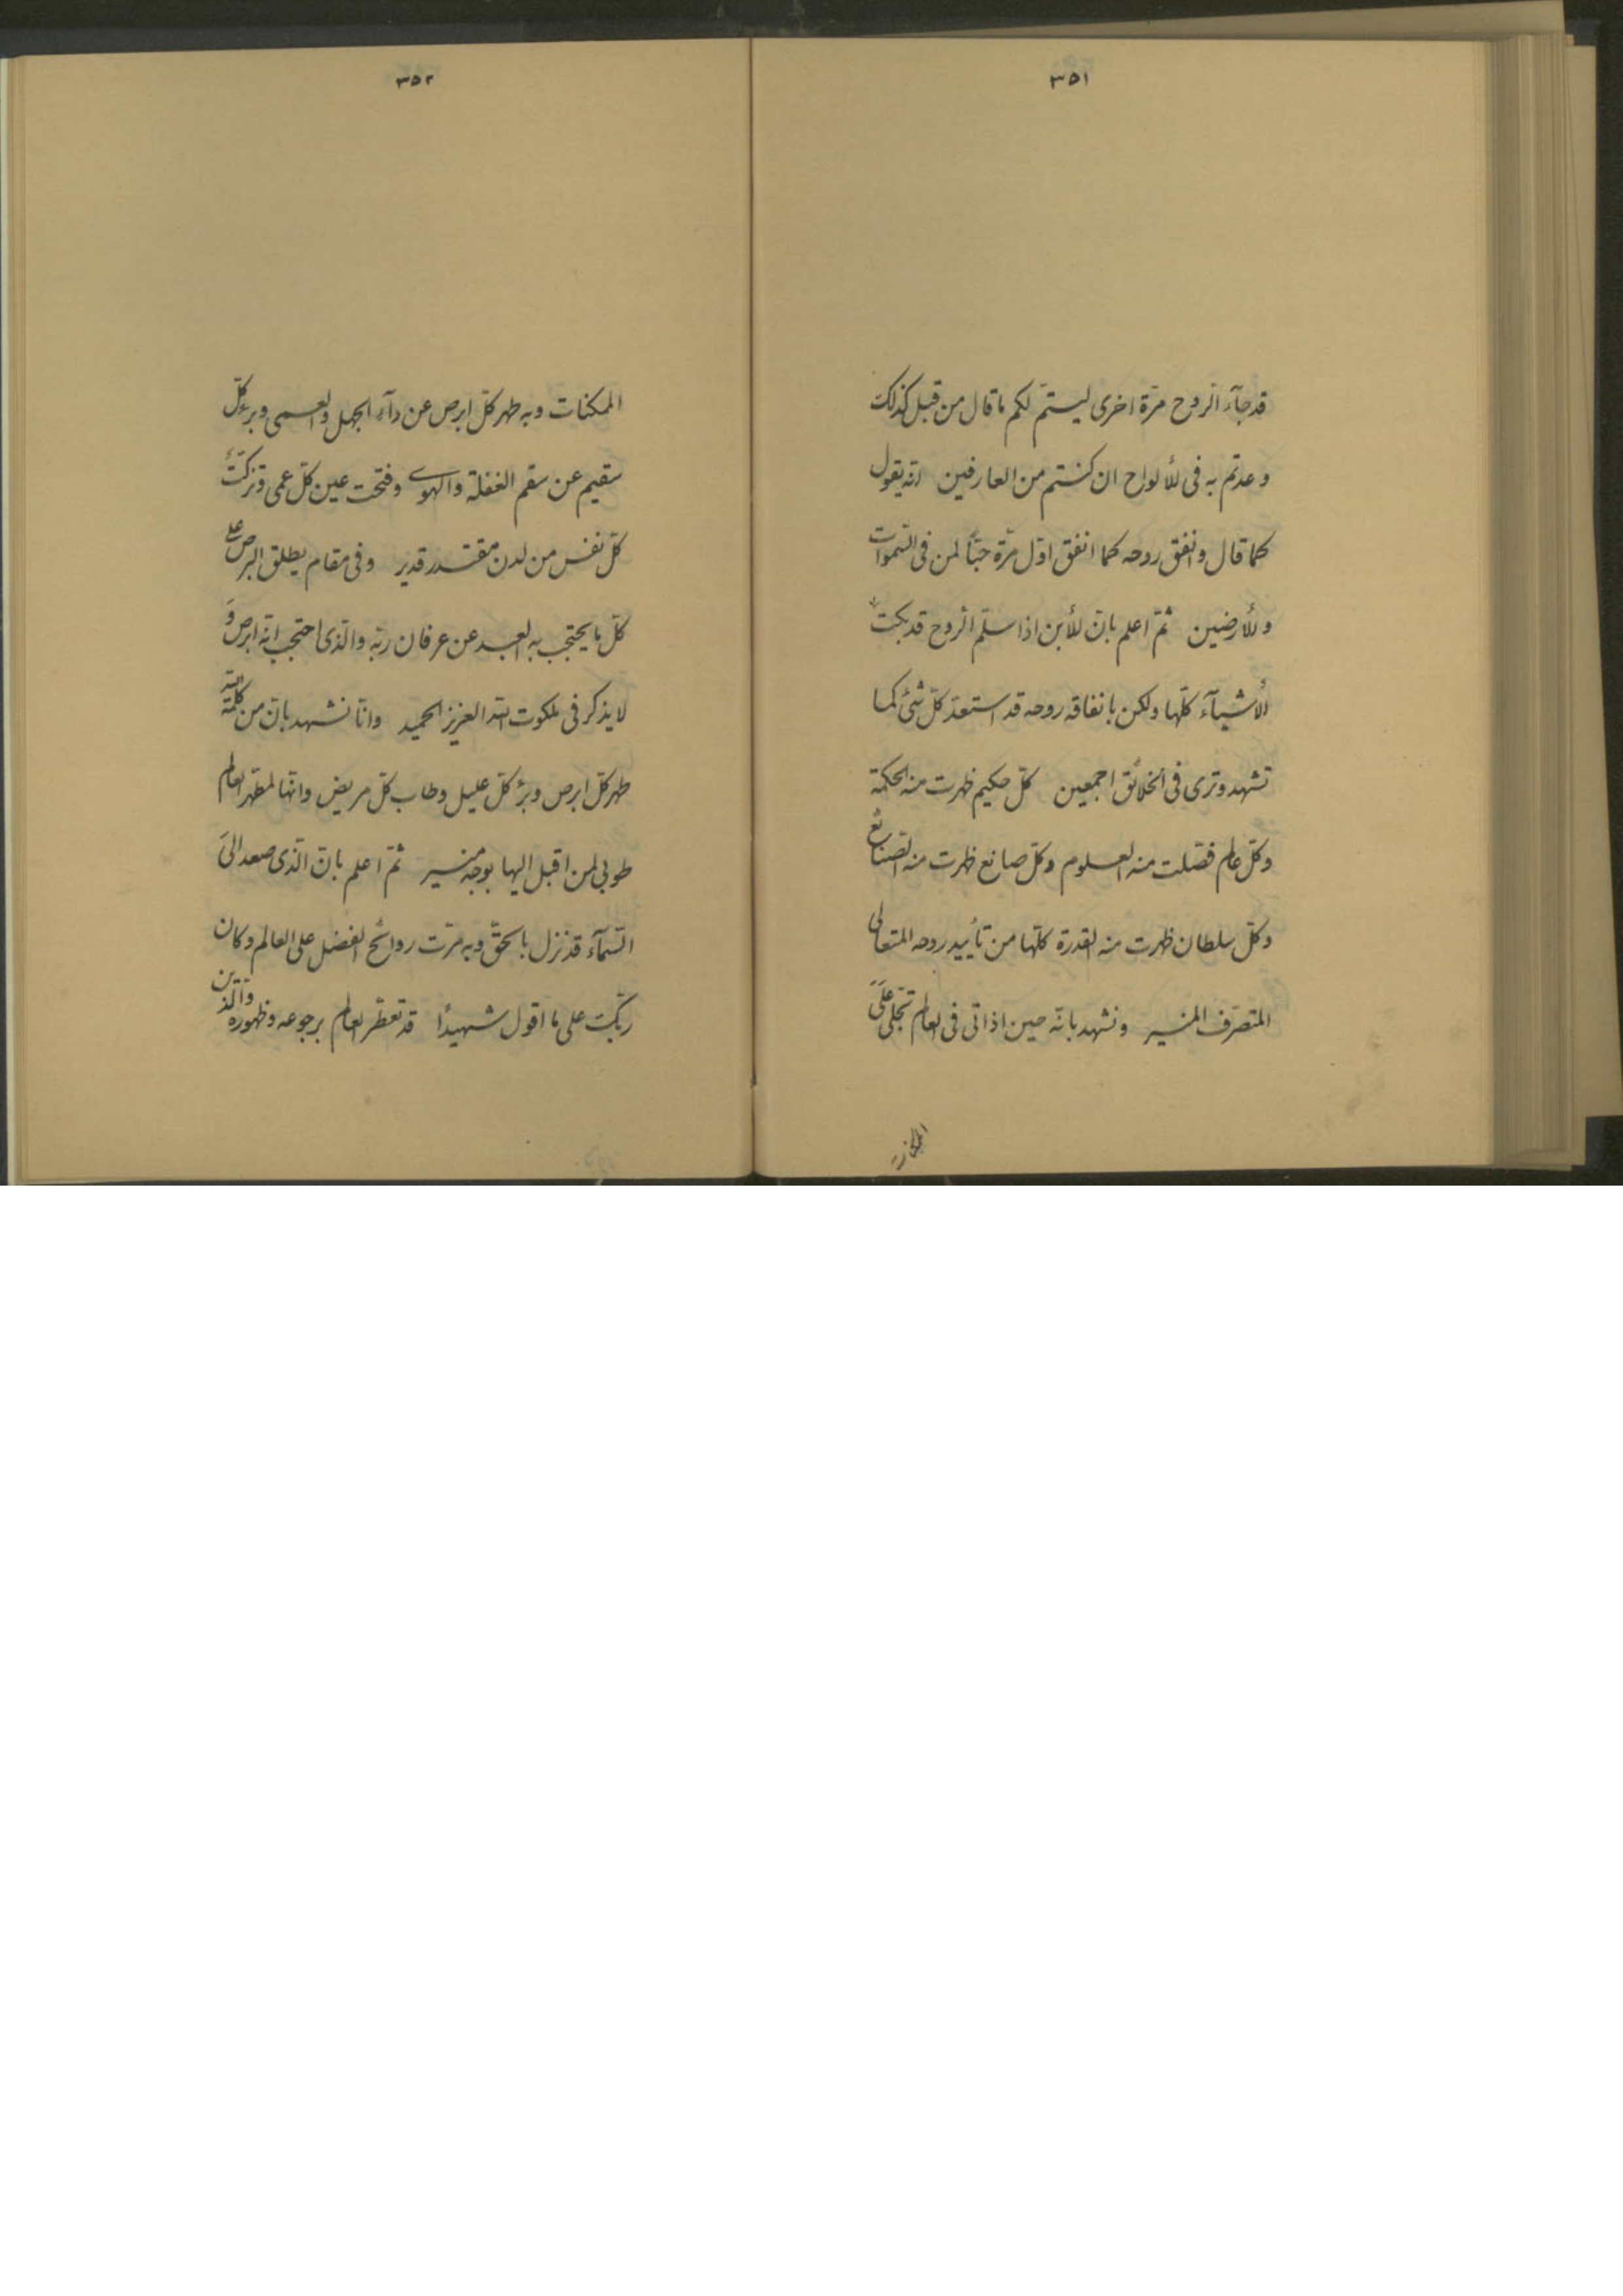 ٣٥١
قد جآء الروح مرّة اخرى ليتمّ لكم ما قال من قبل كذلك
وعدتم به فى الألواح ان كنتم من العارفين انّه يقول
كما قال وانفق روحه كما انفق اوّل مرّة حبّاً لمن فى السّموات
والأرضين ثمّ اعلم بانّ الأبن اذا سلّم الروح قد بكت
الأشيآء كلّها ولكن بانفاقه روحه قد استعدّ كلّ شئ كما
تشهد وترى فى الخلائق اجمعين كلّ حكيم ظهرت منه الحكمة
وكلّ عالم فصّلت منه العلوم وكلّ صانع ظهرت منه الصنائع
وكلّ سلطان ظهرت منه القدرة كلّها من تأييد روحه المتعالى
المتصرّف المنير ونشهد بانّه حين اذ اتى فى العالم تجلّى على
الممكنات
٣٥٢
الممكنات وبه طهر كلّ ابرص عن دآء الجهل والعمى وبرء كلّ
سقيم عن سقم الغفلة والهوى وفتحت عين كلّ عمى وتزكّت
كلّ نفس من لدن مقتدر قدير وفى مقام يطلق البرص على
كلّ ما يحتجب به العبد عن عرفان ربّه والّذى احتجب انّه ابرص و
لا يذكر فى ملكوت الله العزيز الحميد وانّا نشهد بانّ من كلمة الله
طهر كلّ ابرص وبرء كلّ عليل وطاب كلّ مريض وانّها لمطهّر العالم
طوبى لمن اقبل اليها بوجه منير ثمّ اعلم بانّ الّذى صعد الى
السّمآء قد نزل بالحقّ وبه مرّت روائح الفضل على العالم وكان
ربّك على ما اقول شهيداً قد تعطّر العالم برجوعه وظهوره والّذين